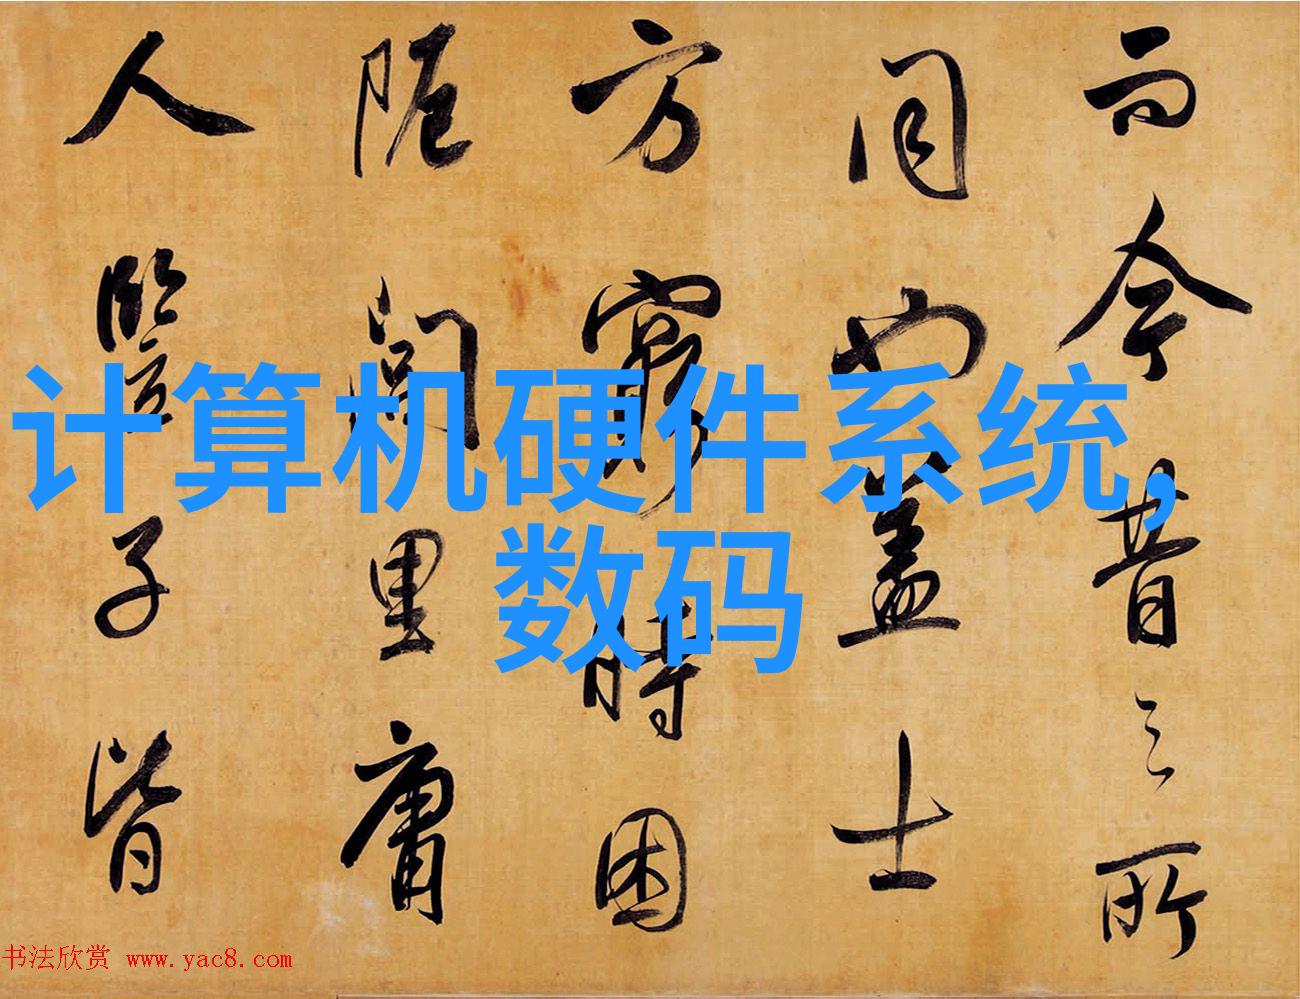 计算机硬件系统,
数码
而今昔之所
同也盖士
方窮時困
阨閭里庸
人豎子皆
书法欣赏 www.yac8.com